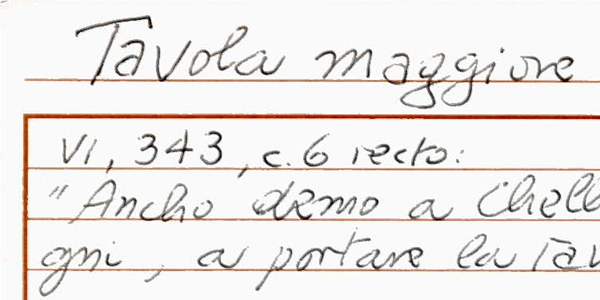 Tavola maggiore
VI, 343, c. 6 recto:
"Ancho demo a Chell
gni, a portare la Tav